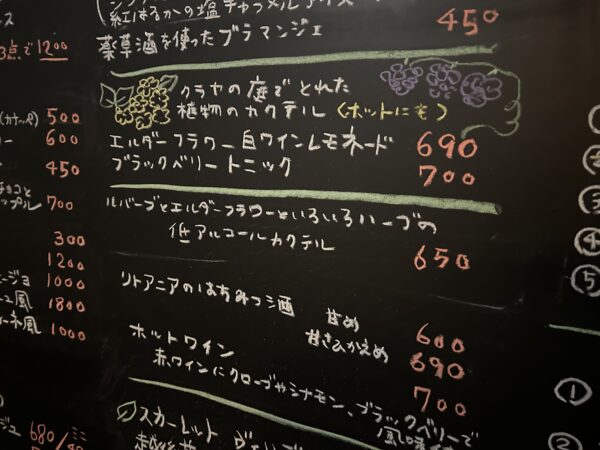 紅はるかの塩キャラメルアイス
450
薬草酒を使ったブラマンジェ
ス
3点で 1200
クラヤの庭でとれた
植物のカクテル (ホットにも)
(カナッペ) 500
ー 600
エルダーフラワー白ワインレモネード 690
450
ブラックベリートニック 700
チョコと
ップル 700
ルバーブとエルダーフラワーといろいろハーブの
低アルコールカクテル 650
300
1200
ージョ 1000
ュ風 1800
ーネ風 1000
リトアニアのはちみつ酒 甘め 600
甘さひかえめ 690
ホットワイン 700
赤ワインにクローブやシナモン、ブラックベリーで
風味
スカーレット
ジュ 680
①
②
③
④
⑤
①
②